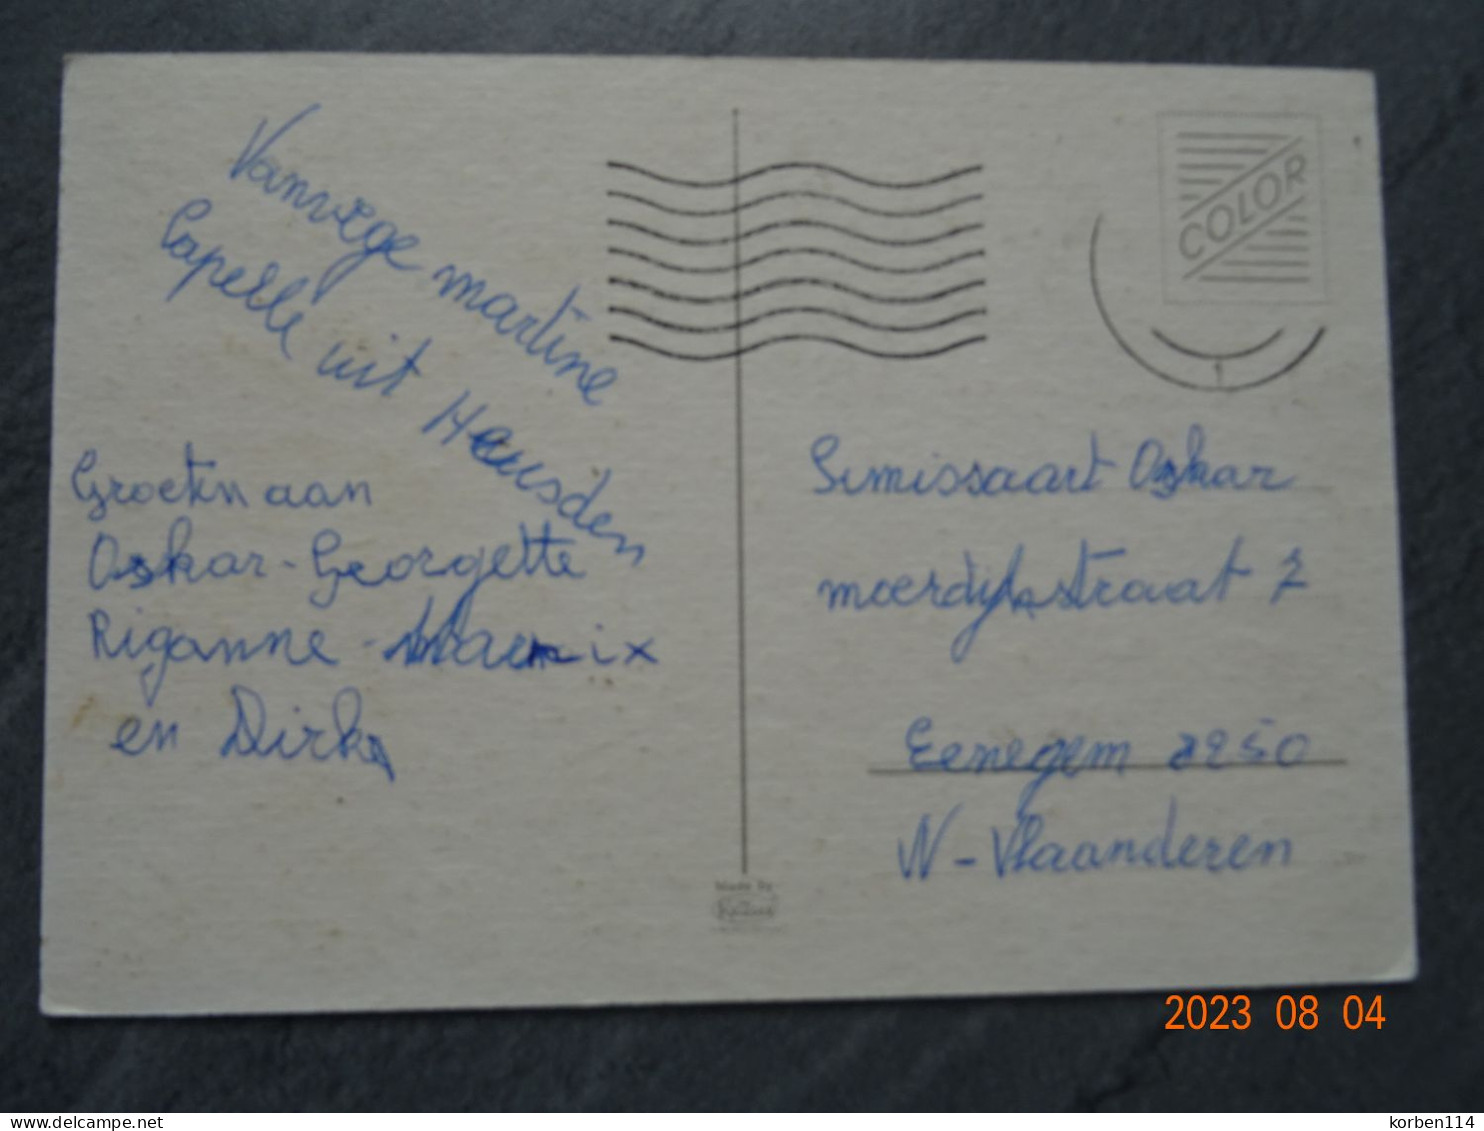 Vanwege martine
Capelle uit Heusden
Groeten aan
Oskar - Georgette
Riganne - Marnix
en Dirk
COLOR
1
Simissaart Oskar
moerdijkstraat 2
Eernegem 8250
W-Vlaanderen
Made by
2023 08 04
delcampe.net
korben114